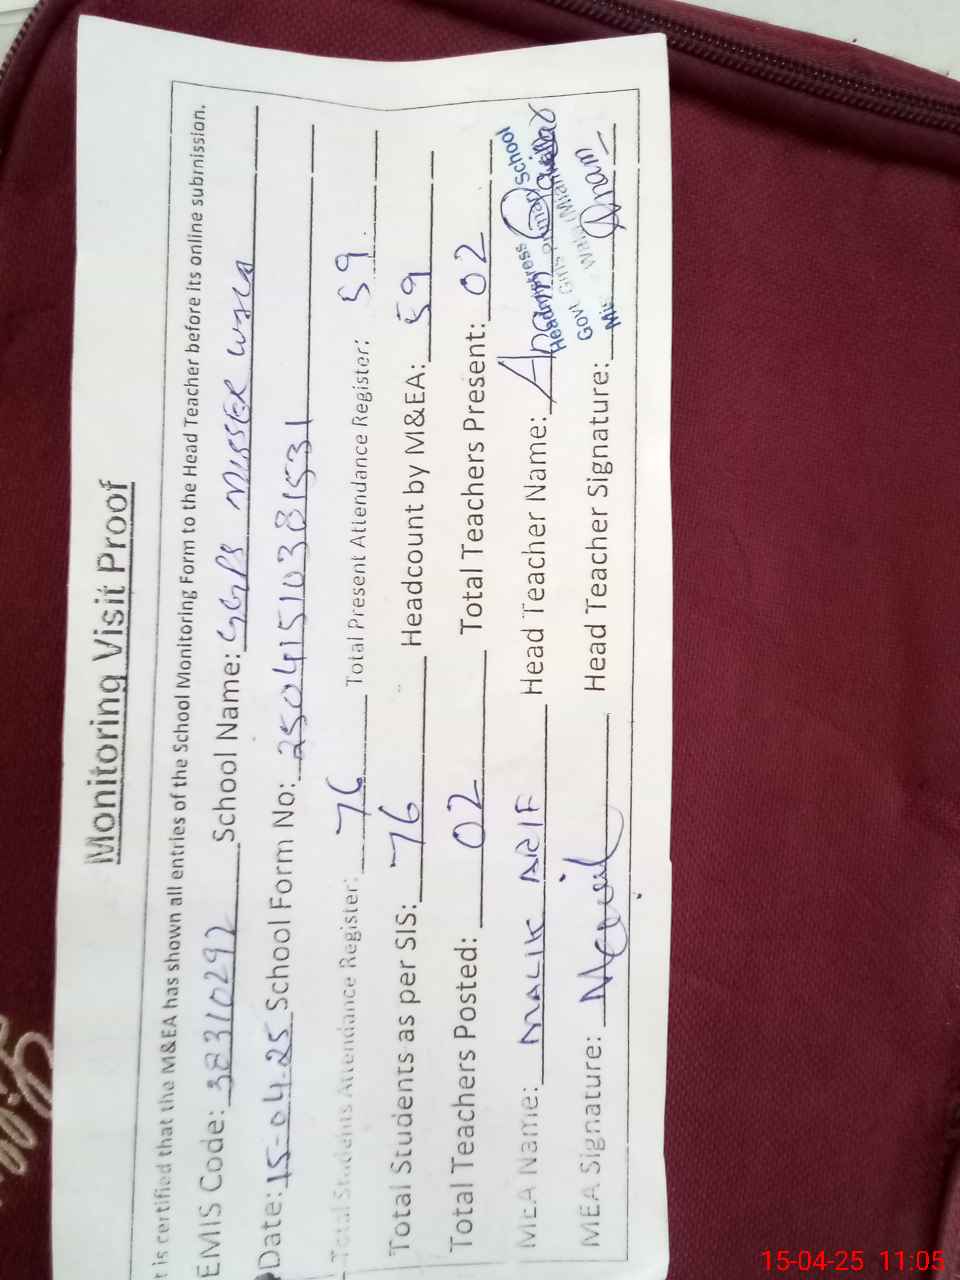 Monitoring Visit Proof
t is certified that the M&EA has shown all entries of the School Monitoring Form to the Head Teacher before its online submission.
EMIS Code: 38310292 School Name: GGPS MISSER WALA
Date: 15-04-25 School Form No: 25041510381531
Total Students Attendance Register: 76 Total Present Attendance Register: 59
Total Students as per SIS: 76 Headcount by M&EA: 59
Total Teachers Posted: 02 Total Teachers Present: 02
MEA Name: MALIK ARIF Head Teacher Name: Anam
MEA Signature: Head Teacher Signature: Anam
Headmistress
Govt. Girls Primary School
15-04-25 11:05